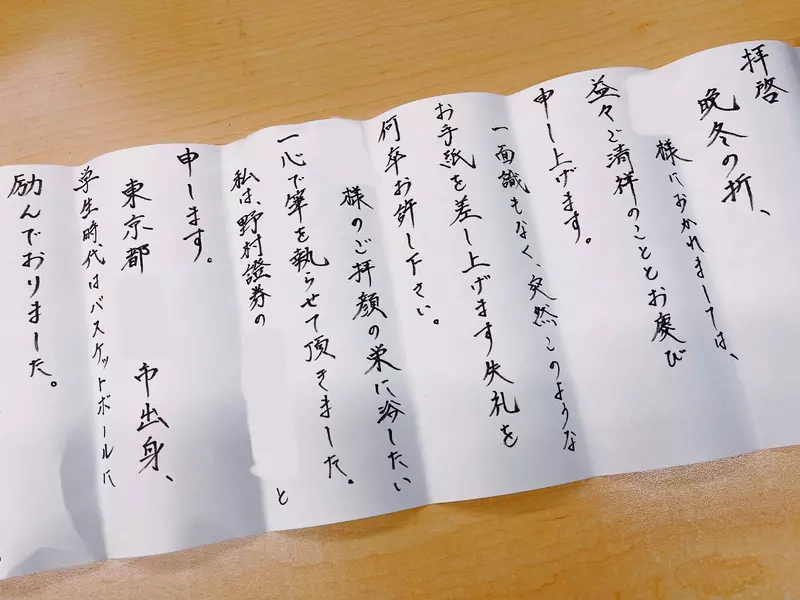 拝啓
晩冬の折、
様におかれましては、
益々ご清祥のこととお慶び
申し上げます。
一面識もなく、突然このような
お手紙を差し上げます失礼を
何卒お許し下さい。
様のご拝顔の栄に浴したい
一心で筆を執らせて頂きました。
私は、野村證券の
と
申します。
東京都
市出身、
学生時代はバスケットボールに
励んでおりました。